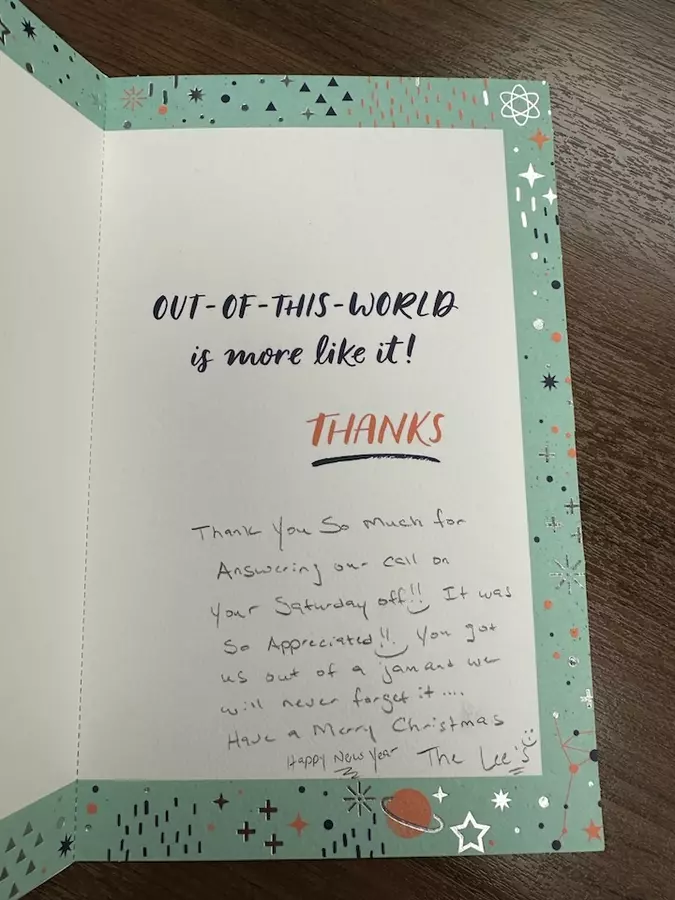 OUT-OF-THIS-WORLD
is more like it!
THANKS
Thank You So Much for
Answering our call on
Your Saturday off!! It was
So Appreciated!! You got
us out of a jam and we
will never forget it....
Have a Merry Christmas
Happy New Year The Lee's